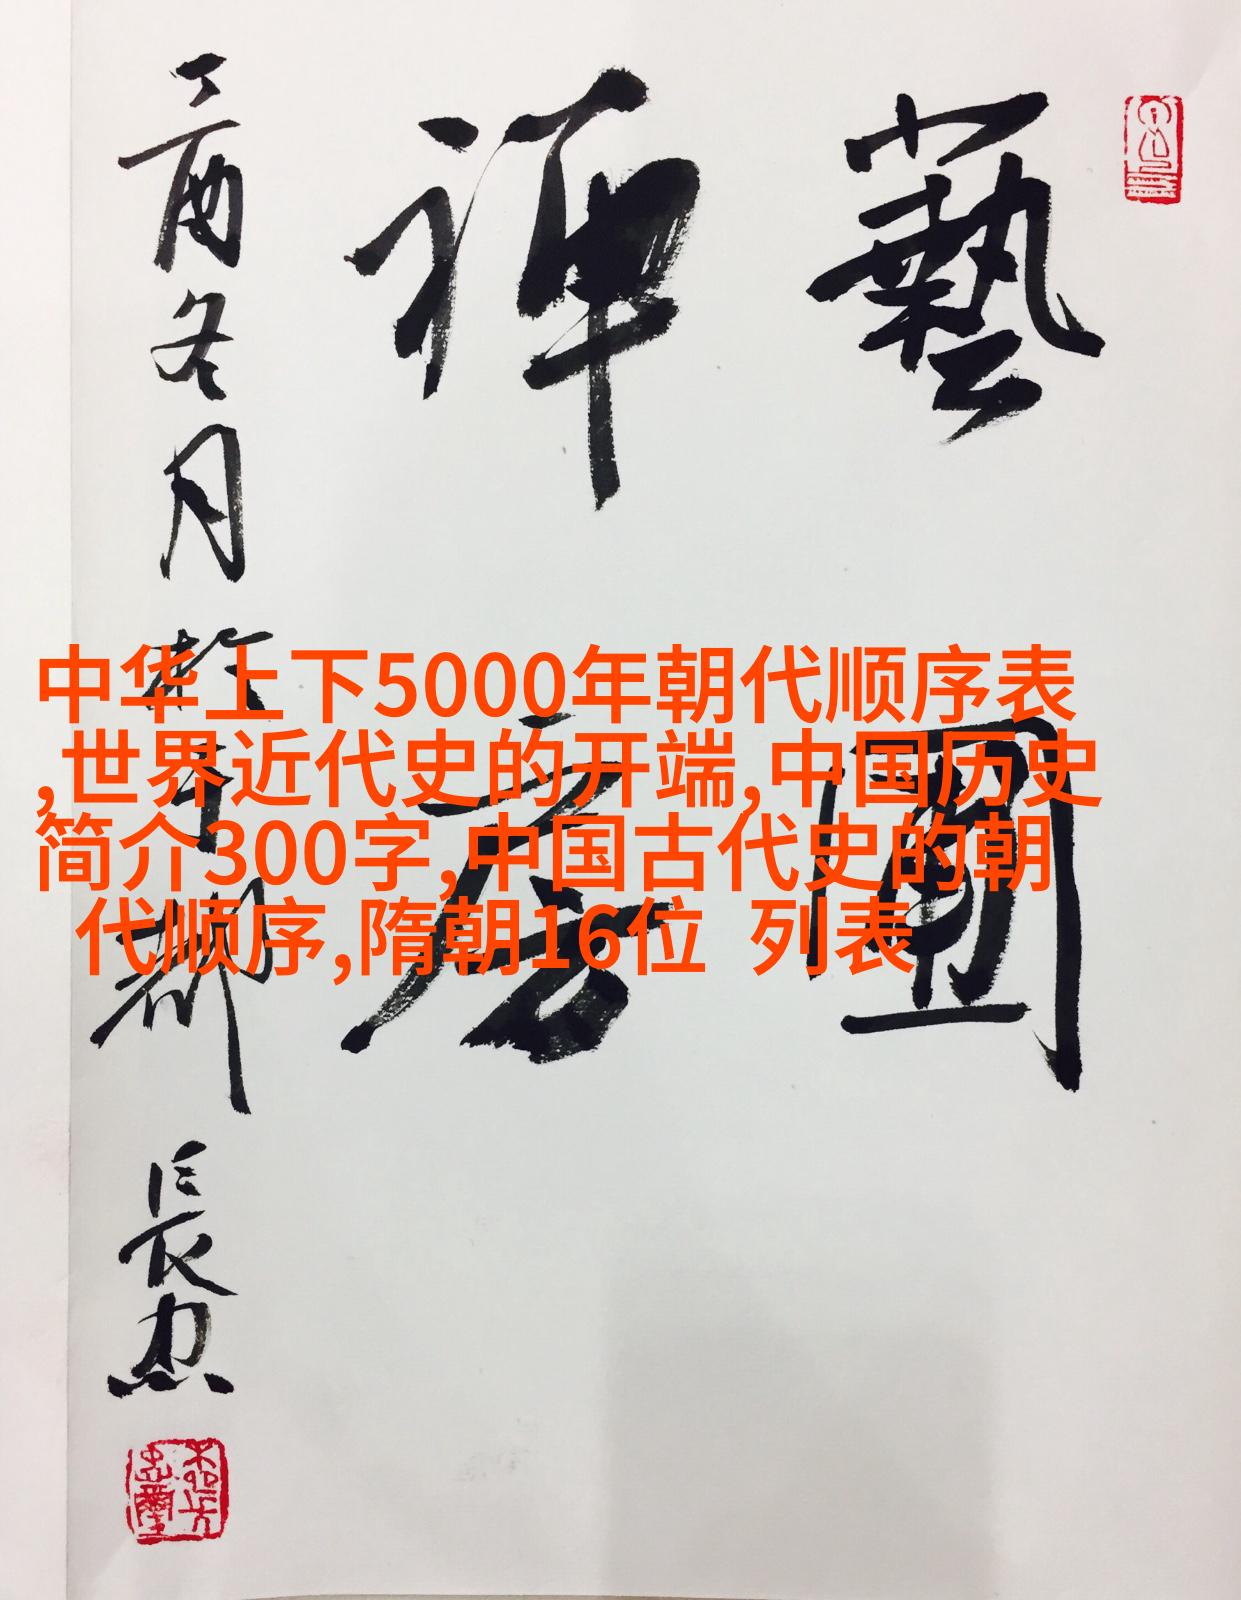 藝
禪房
丁酉冬月於 都長
中华上下5000年朝代顺序表
,世界近代史的开端,中国历史
简介300字,中国古代史的朝
代顺序,隋朝16位 列表